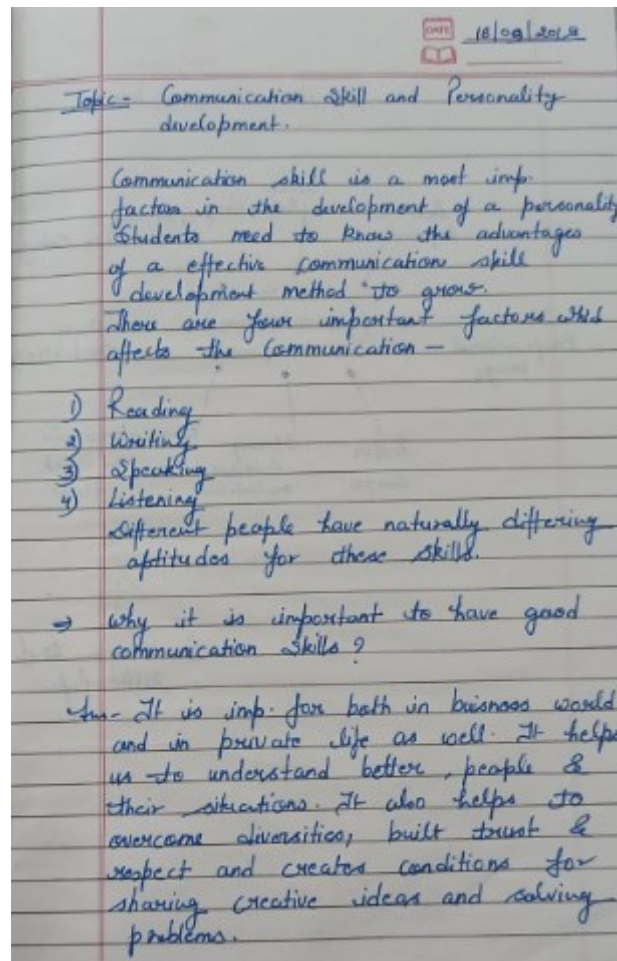 DATE 18/09/2019
Topic - Communication Skill and Personality
development.
Communication skill is a most imp.
factors in the development of a personality
Students need to know the advantages
of a effective communication skill
development method to grow.
There are four important factors which
affects the Communication —
1) Reading
2) Writing
3) Speaking
4) Listening
Different people have naturally differing
aptitudes for these skills.
→ Why it is important to have good
communication skills ?
Ans- It is imp. for both in buisness world
and in private life as well. It helps
us to understand better, people &
their situations. It also helps to
overcome diversities, built trust &
respect and creates conditions for
sharing creative ideas and solving
problems.